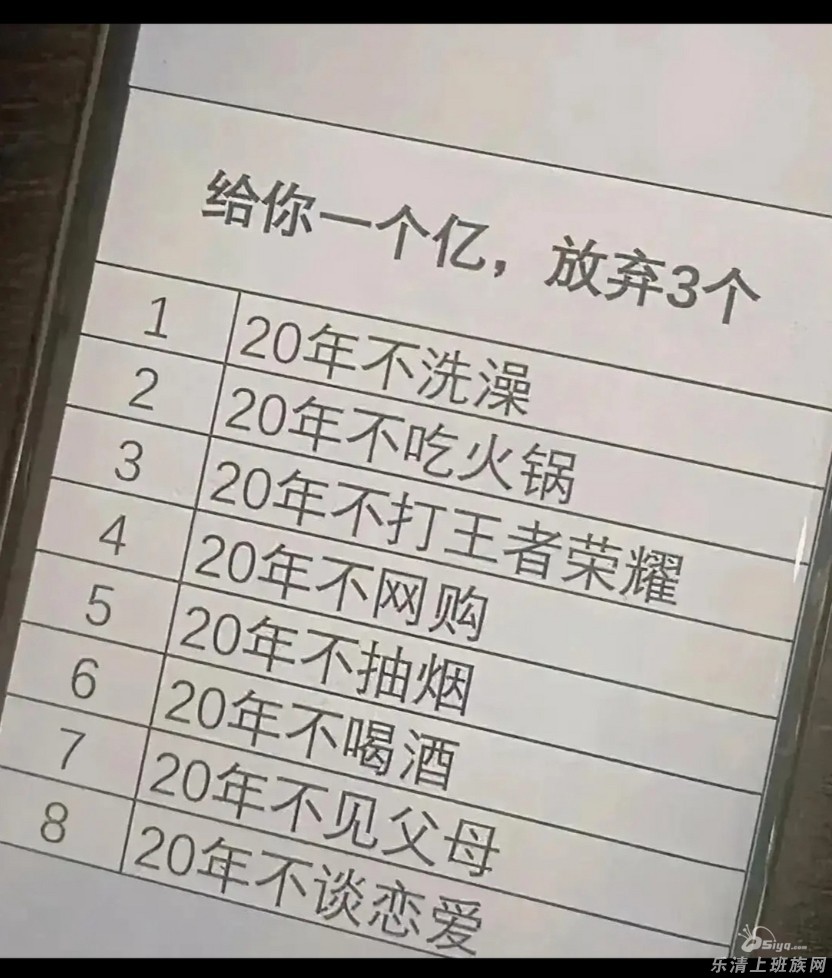 给你一个亿，放弃3个
1 20年不洗澡
2 20年不吃火锅
3 20年不打王者荣耀
4 20年不网购
5 20年不抽烟
6 20年不喝酒
7 20年不见父母
8 20年不谈恋爱
Siyq.com
乐清上班族网